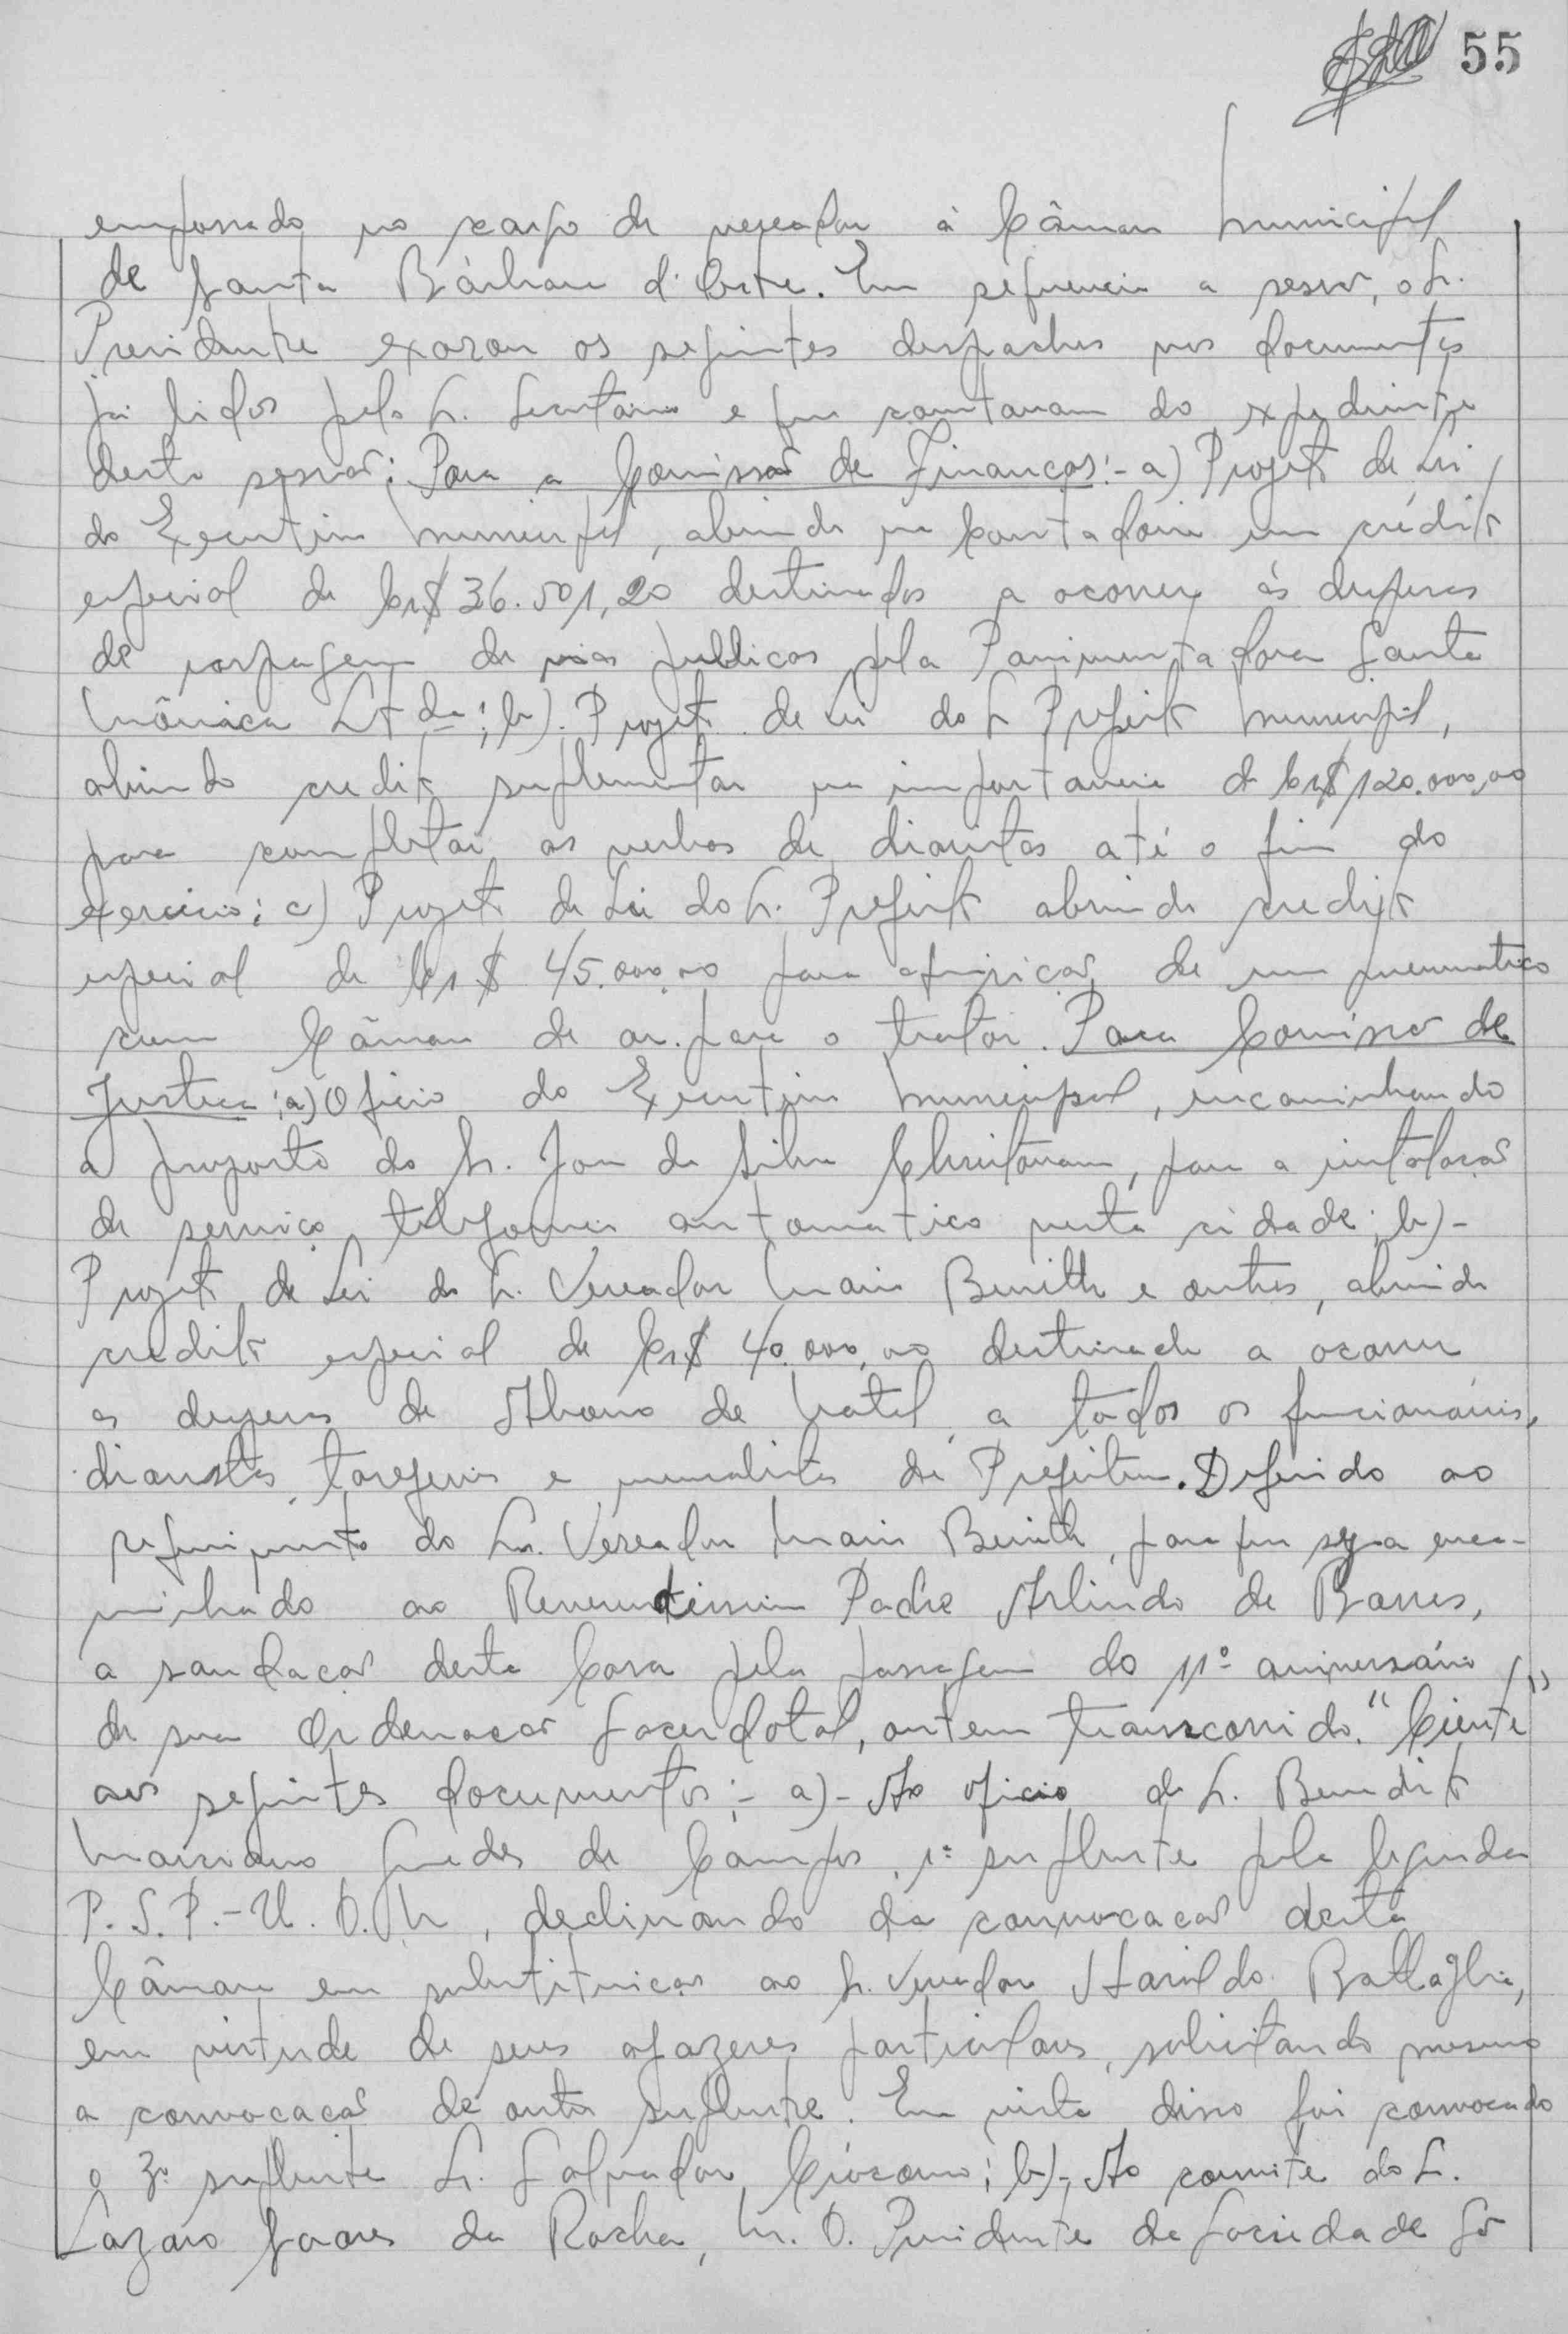 55
empossado no cargo de vereador à Câmara Municipal
de Santa Bárbara d'Oeste. Em sequencia a sessão, o Sr.
Presidente exarou os seguintes despachos nos documentos
já lidos pelo Sr. Secretario e que constaram do expediente
desta sessão: Para a Comissão de Finanças:- a) Projeto de Lei
do Executivo Municipal, abrindo na Contadoria um crédito
especial de Cr$ 36.501,20 destinados a ocorrer ás despesas
de raspagem de vias publicas pela Pavimentadora Santa
Mônica Ltda; b). Projeto de Lei do Sr Prefeito Municipal,
abrindo credito suplementar na importancia de Cr$ 120.000,00
para completar as verbas de diaristas até o fim do
exercicio; c) Projeto de Lei do Sr. Prefeito abrindo credito
especial de Cr$ 45.000,00 para aquisição de um pneumatico
com Câmara de ar para o trator. Para Comissão de
Justiça: a) Oficio do Executivo Municipal, encaminhando
a proposta do Sr. Jose da Silva para a instalação
de serviço telefonico automatico nesta cidade; b)-
Projeto de Lei do Sr. Vereador Mario Benith e outros, abrindo
credito especial de Cr$ 40.000,00 destinado a ocorrer
as despesas de Abono de Natal a todos os funcionários,
diaristas, tarefeiros e mensalistas da Prefeitura. Deferido ao
requerimento do Sr. Vereador Mario Benith, para que seja enca-
minhado ao Reverendissimo Padre Arlindo de Barros,
a saudação desta Casa pela passagem do 11º aniversário
de sua Ordenação Sacerdotal, ontem transcorrido. "Ciente"
aos seguintes documentos:- a)- Ao oficio do Sr. Benedito
Marciano Guedes de Campos, 1º suplente pela legenda
P.S.P.-U.D.N, declinando da convocação desta
Câmara em substituição ao Sr. Vereador Haroldo Battaglia,
em virtude de seus afazeres particulares, solicitando mesmo
a convocação de outro suplente. Em vista disso foi convocado
o 3º suplente Sr. Salvador; b)- Ao convite do Sr.
Lazaro Soares da Rocha, M. D. Presidente da Sociedade São